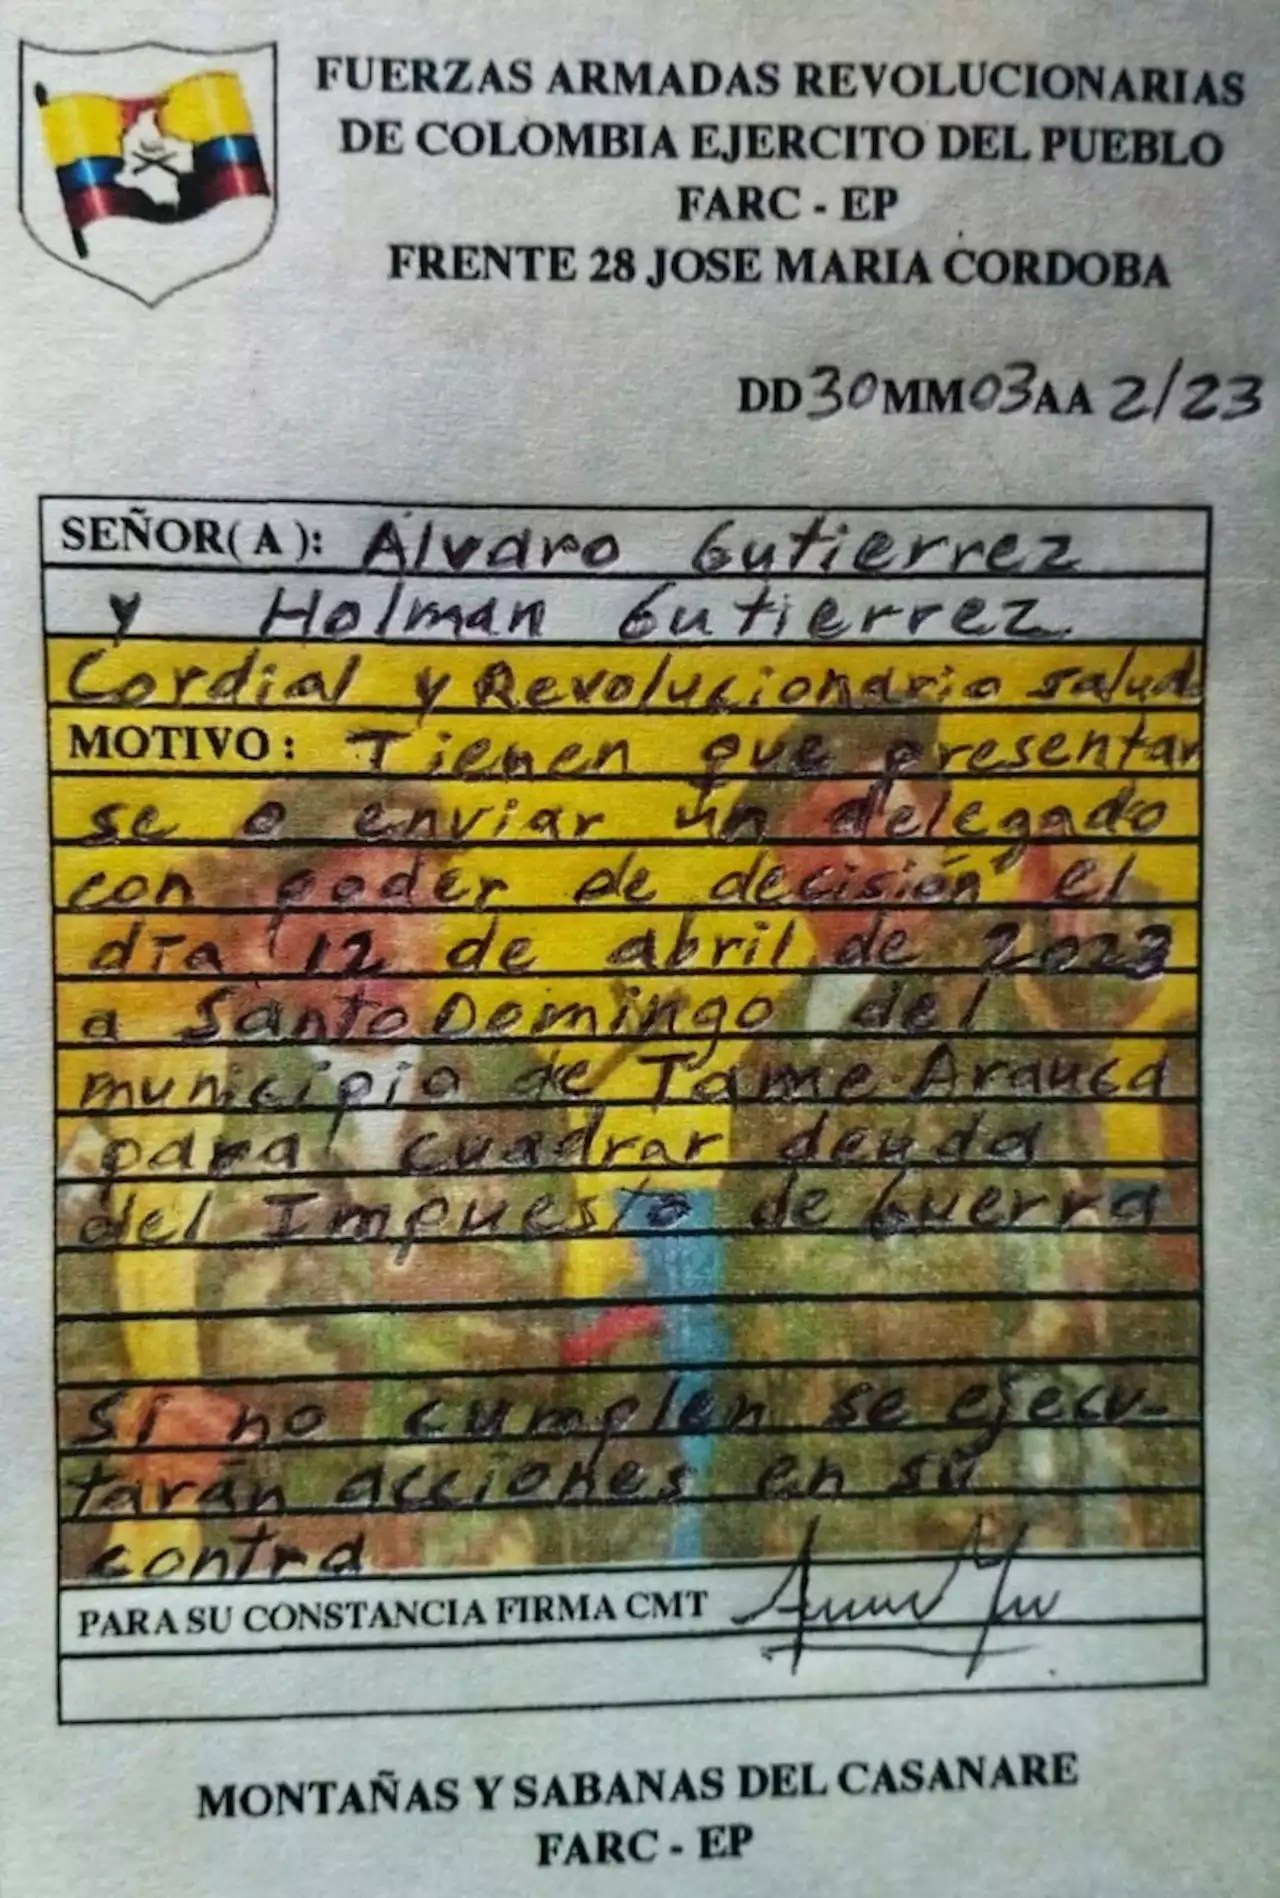 FUERZAS ARMADAS REVOLUCIONARIAS
DE COLOMBIA EJERCITO DEL PUEBLO
FARC - EP
FRENTE 28 JOSE MARIA CORDOBA
DD 30 MM 03 AA 2/23
SEÑOR( A ): Alvaro Gutierrez
y Holman Gutierrez
Cordial y Revolucionario salud
MOTIVO : Tienen que presentar
se o enviar un delegado
con poder de decisión el
día 12 de abril de 2023
a Santo Domingo del
municipio de Tame Arauca
para cuadrar deuda
del Impuesto de Guerra
Si no cumplen se ejecu-
tarán acciones en su
contra
PARA SU CONSTANCIA FIRMA CMT
MONTAÑAS Y SABANAS DEL CASANARE
FARC - EP